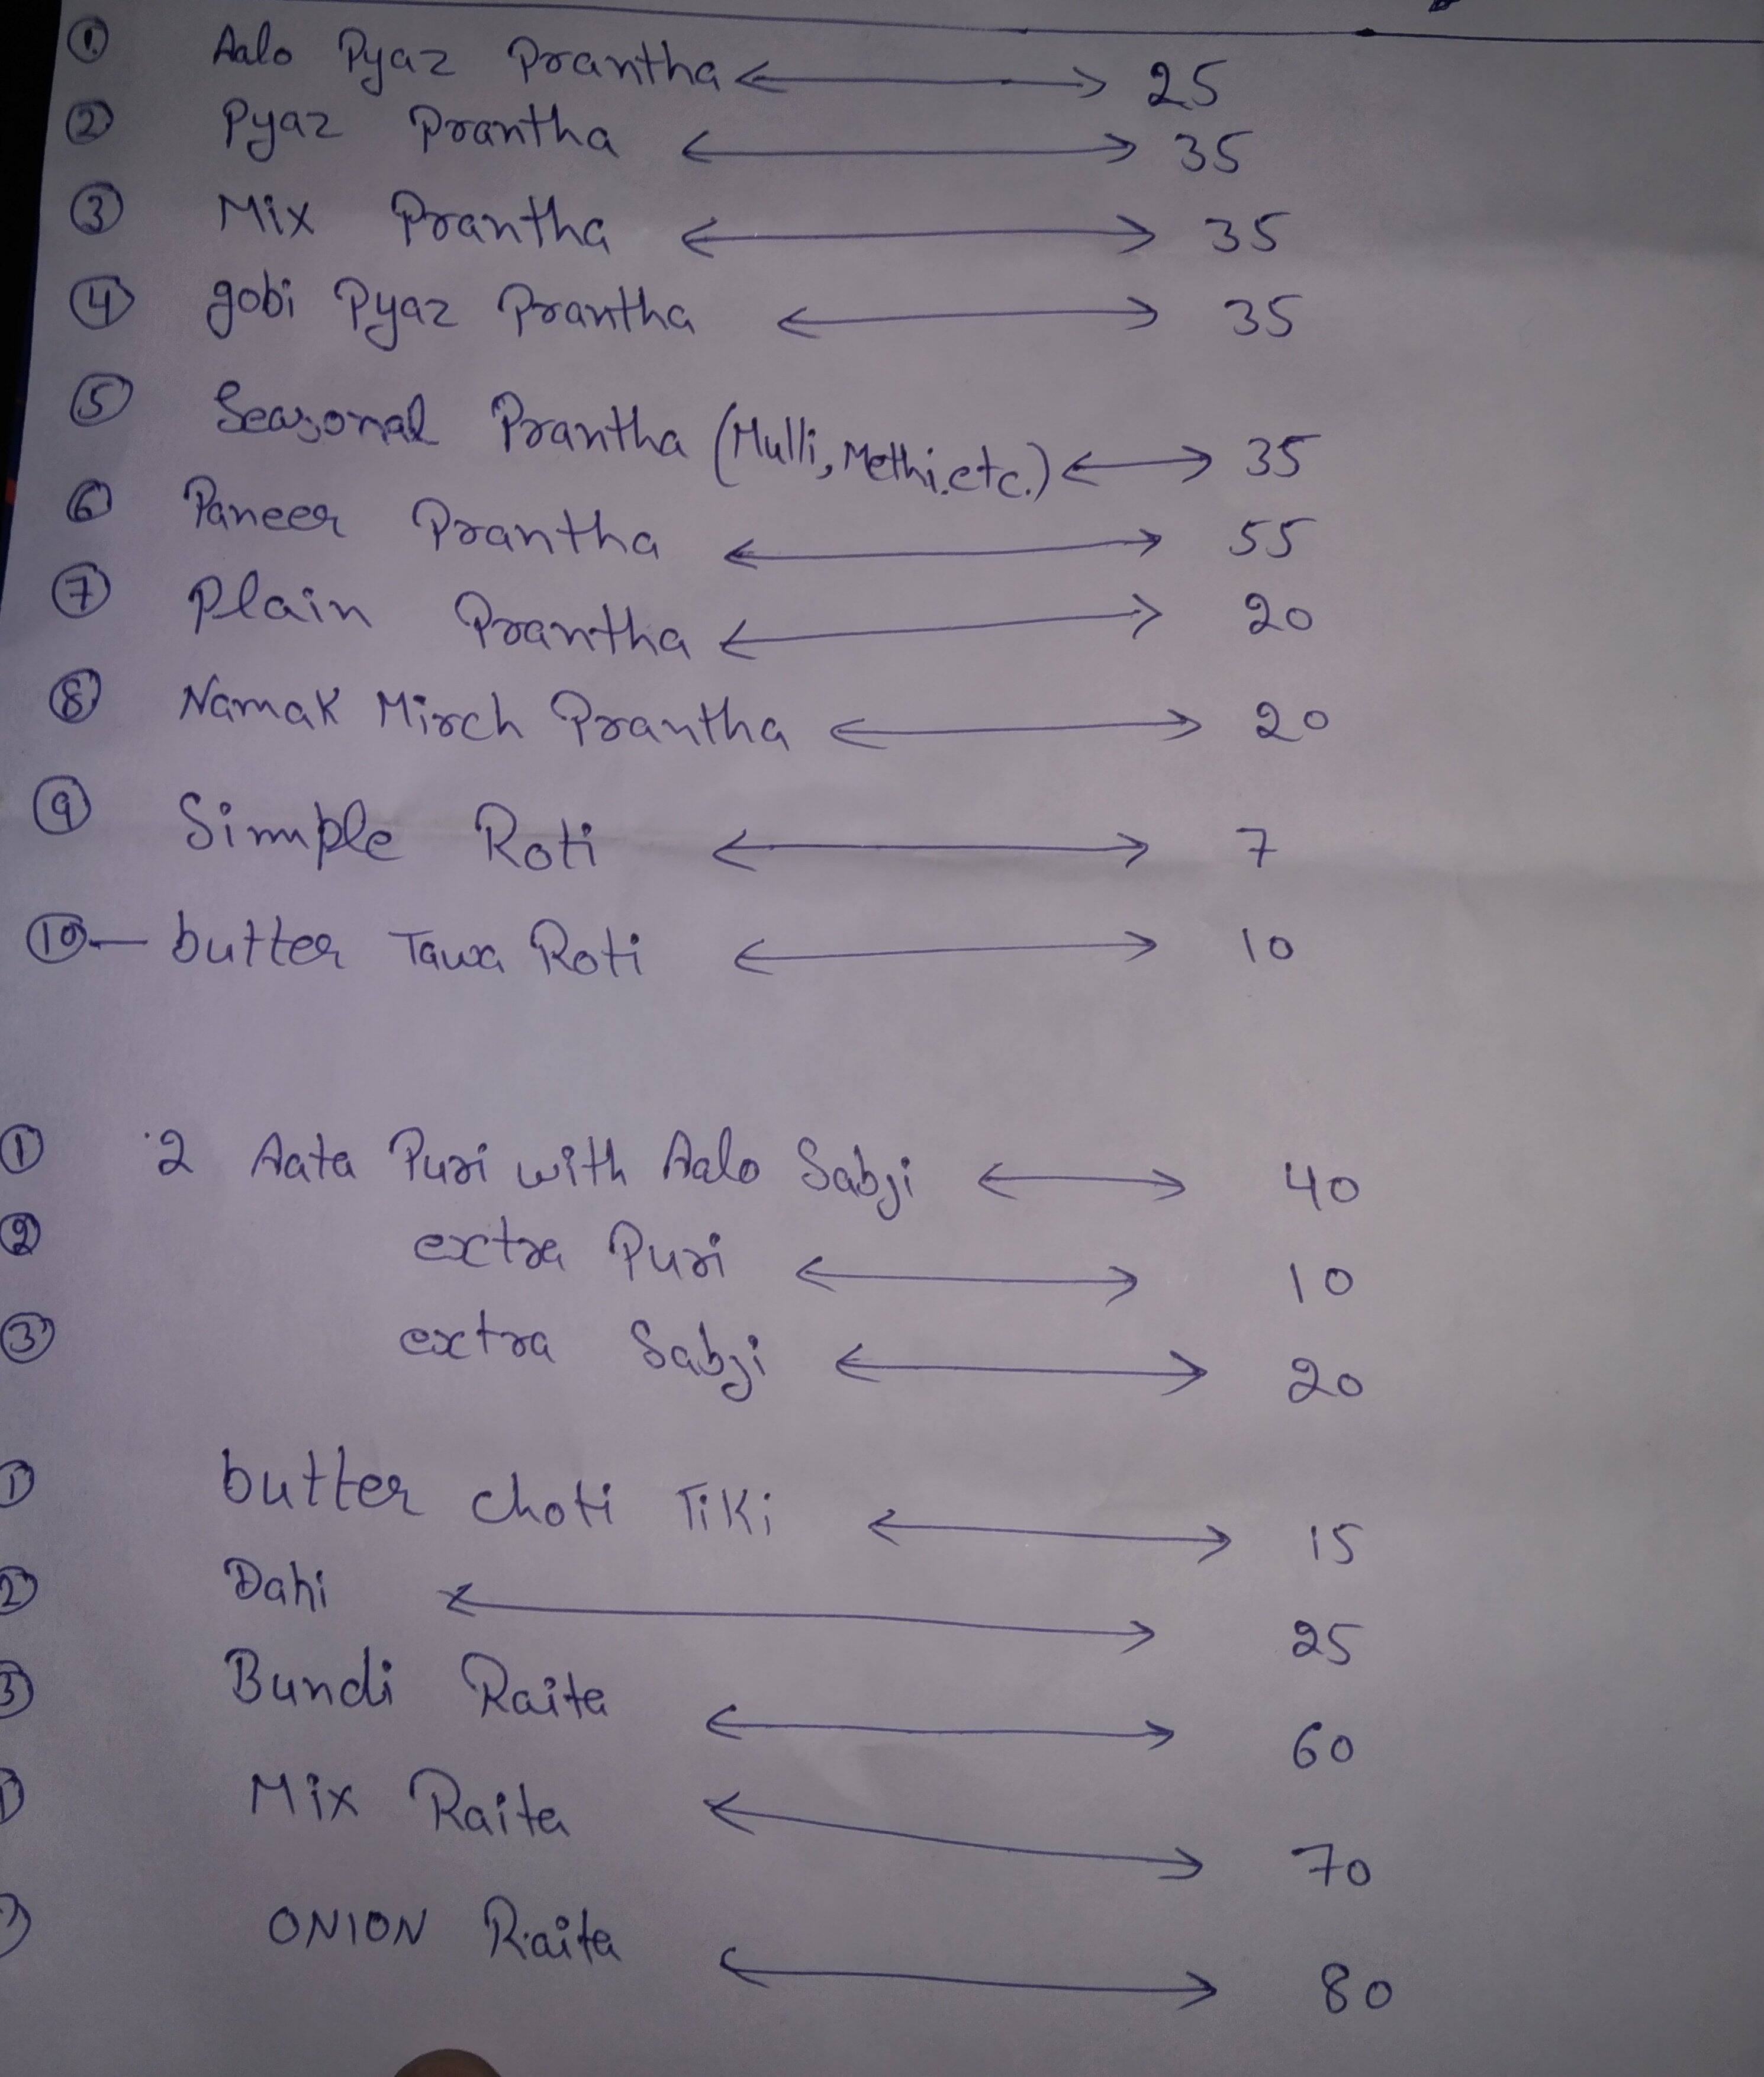 ① Aalo Pyaz Prantha ↔ 25
② Pyaz Prantha ↔ 35
③ Mix Prantha ↔ 35
④ gobi Pyaz Prantha ↔ 35
⑤ Seasonal Prantha (Mulli, Methi.etc.) ↔ 35
⑥ Paneer Prantha ↔ 55
⑦ Plain Prantha ↔ 20
⑧ Namak Mirch Prantha ↔ 20
⑨ Simple Roti ↔ 7
⑩ — butter Tawa Roti ↔ 10
① 2 Aata Puri with Aalo Sabji ↔ 40
② extra Puri ↔ 10
③ extra Sabji ↔ 20
① butter choti Tiki ↔ 15
② Dahi ↔ 25
③ Bundi Raita ↔ 60
Mix Raita ↔ 70
ONION Raita ↔ 80